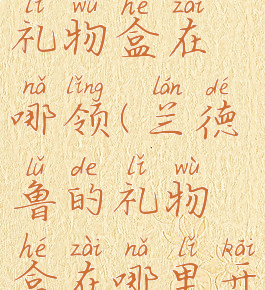 lǐ wù hé zài
礼物盒在
nǎ lǐng lán dé
哪领(兰德
lǔ de lǐ wù
鲁的礼物
hé zài nǎ lǐ kāi
盒在哪里开